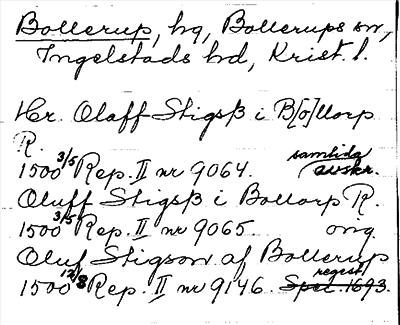 Bollerup, hg, Bollerups sn,
Ingelstads hd, Krist. l.
Hr. Olaff Stigsß i B[o]llorp
R.
1500 3/5 Rep. II nr 9064. samtida avskr.
Oluff Stigsß i Bollorp R.
1500 3/5 Rep. II nr 9065. orig
Oluf Stigson af Bollerup
1500 12/8 Rep. II nr 9146. regest Spec. 1693.